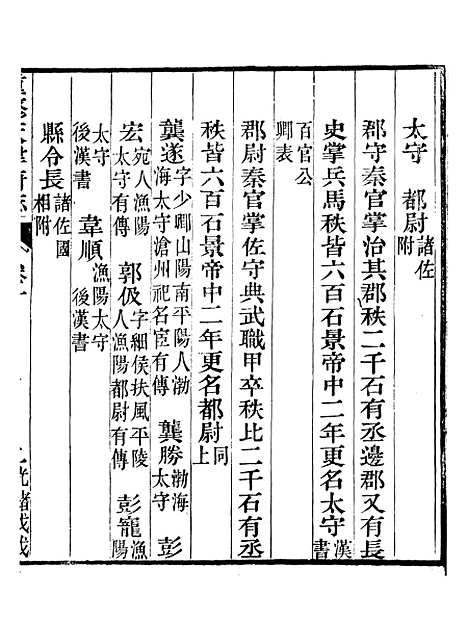 太守　都尉諸佐附
郡守秦官掌治其郡秩二千石有丞邊郡又有長
史掌兵馬秩皆六百石景帝中二年更名太守漢書
百官公卿表
郡尉秦官掌佐守典武職甲卒秩比二千石有丞
秩皆六百石景帝中二年更名都尉同上
龔遂字少卿山陽南平陽人渤海太守滄州祀名宦有傳　龔勝渤海太守　彭
宏宛人漁陽太守有傳　郭伋字細侯扶風平陵人漁陽都尉有傳　彭寵漁陽
太守後漢書　韋順漁陽太守後漢書
縣令長諸佐國相附
光緒戊戌